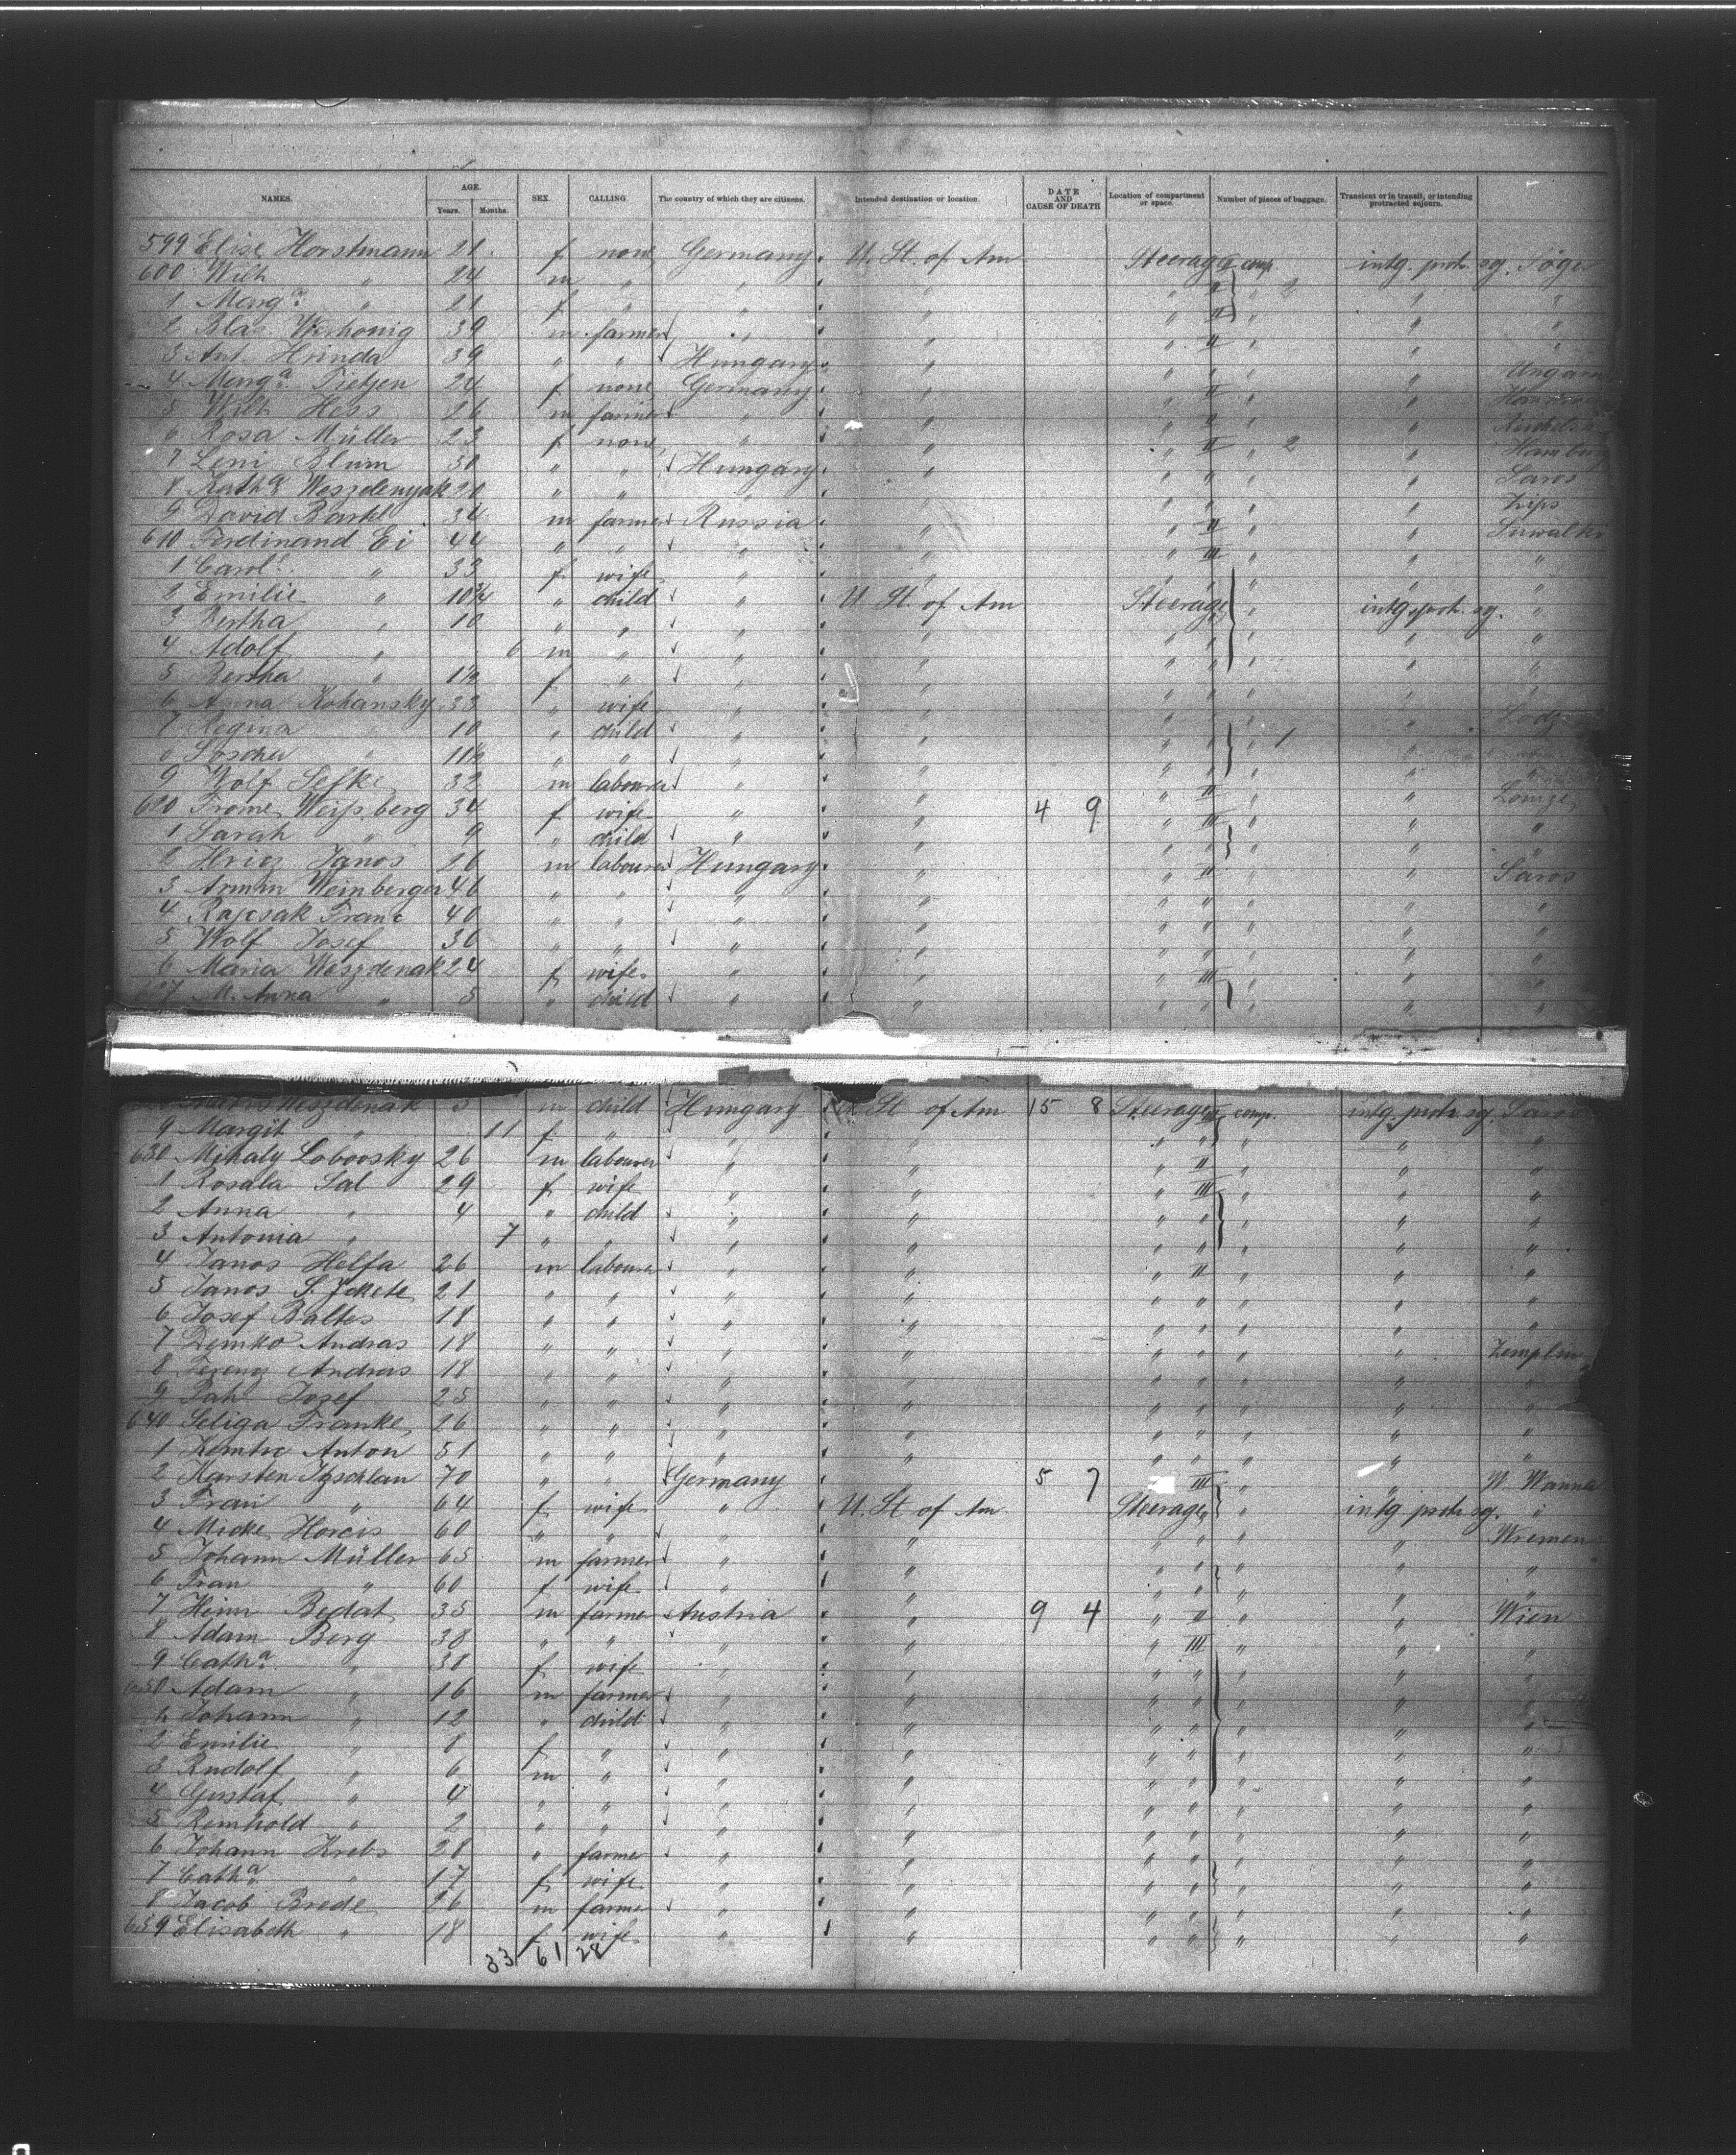 NAMES. AGE. Years. Months. SEX. CALLING. The country of which they are citizens. Intended destination or location. DATE AND CAUSE OF DEATH Location of compartment or space. Number of pieces of baggage. Transient or in transit, or intending protracted sojourn.
599 Elise Horstmann 21 f none Germany U. St. of Am Steerage comp. intg. protr. sg.
600 Wilh " 24 m " " " " II " " "
1 Marg.a " 21 f " " " " " " " "
2 Blas 39 m farmer " " " II " " "
3 Ant. Hrinda 39 " " Hungary " " " " " Ungarn
4 Marg.a Tietjen 24 f none Germany " " II " "
5 Wilh Hess 26 m farmer " " " " " "
6 Rosa Müller 23 f none " " " II " 2 " Hamburg
7 Leni Blum 30 " " Hungary " " " " " Saros
8 Kath.a Weszdenyak 20 " " " " " " " " Zips
9 David Bartel 34 m farmer Russia " " II " " Suwalki
610 Ferdinand Ei 44 " " " " " III " " "
1 Carol. " 33 f wife " " " " " " "
2 Emilie " 10 " child " U. St. of Am Steerage " intg. protr. sg. "
3 Bertha " 10 " " " " " " " " "
4 Adolf " 6 m " " " " " " " "
5 Bertha " f " " " " " " " "
6 Anna Kohansky 33 " wife " " " " " " Lodz
7 Regina " 10 " child " " " " " 1 " "
8 " " " " " " " " " "
9 Wolf Sefke 32 m labourer " " " II " " Lomze
620 Frome Weissberg 34 f wife " " 4 9 " III " " "
1 Sarah " 9 " child " " " " " " "
2 Hricz Janos 26 m labourer Hungary " " II " " Saros
3 Armin Weinberger 46 " " " " " " " " "
4 Rajcsak Franc 40 " " " " " " " " "
5 Wolf Josef 30 " " " " " " " " "
6 Maria Weszdenak 24 f wife " " " III " " "
627 M. Anna " 5 " child " " " " " " "
Weszdenak 3 m child Hungary U. St of Am 15 8 Steerage comp. intg. protr. sg. Saros
9 Margit " 11 f " " " " " " " "
630 Mihaly Lobovsky 26 m labourer " " " II " " "
1 Rosala Sal 29 f wife " " " III " " "
2 Anna " 4 " child " " " " " " "
3 Antonia " 7 " " " " " " " " "
4 Janos Helfa 26 m labourer " " " II " " "
5 Janos S. Fekete 21 " " " " " " " " "
6 Josef Baltes 18 " " " " " " " " "
7 Demko Andras 18 " " " " " " " " Zemplin
8 Ferenz Andras 18 " " " " " " " " "
9 Pah Jozef 25 " " " " " " " " "
640 Seliga Franke 26 " " " " " " " " "
1 Anton 51 " " " " " " " " "
2 Karsten 70 " " Germany 5 7 III " " W. Wanna
3 Frau " 64 f wife " U. St of Am Steerage " intg protr sg. "
4 Micke 60 " " " " " " " " Wremen
5 Johann Müller 65 m farmer " " " " " " "
6 Frau " 60 f wife " " " " " " "
7 Heinr Bedat 35 m farmer Austria " 9 4 " II " " Wien
8 Adam Berg 38 " " " " " III " " "
9 Cath.a " 38 f wife " " " " " " "
650 Adam " 16 m farmer " " " " " " "
1 Johann " 12 " child " " " " " " "
2 Emilie " 8 f " " " " " " " "
3 Rudolf " 6 m " " " " " " " "
4 Gustaf " 4 " " " " " " " " "
5 Reinhold " 2 " " " " " " " " "
6 Johann Krebs 28 " farmer " " " " " " "
7 Cath.a " 17 f wife " " " " " " "
8 Jacob Brede 26 m farmer " " " " " " "
659 Elisabeth " 18 f wife " " " " " " "
33 61 28